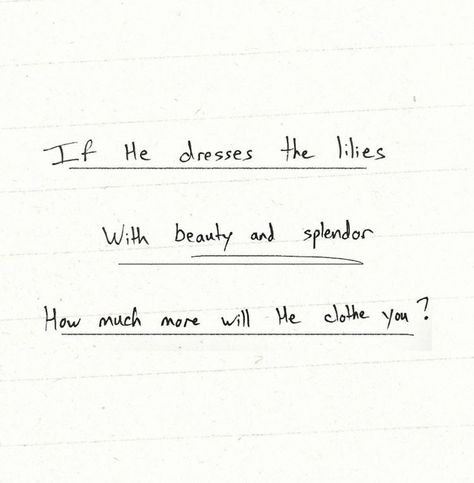 If He dresses the lilies
With beauty and splendor
How much more will He clothe you?